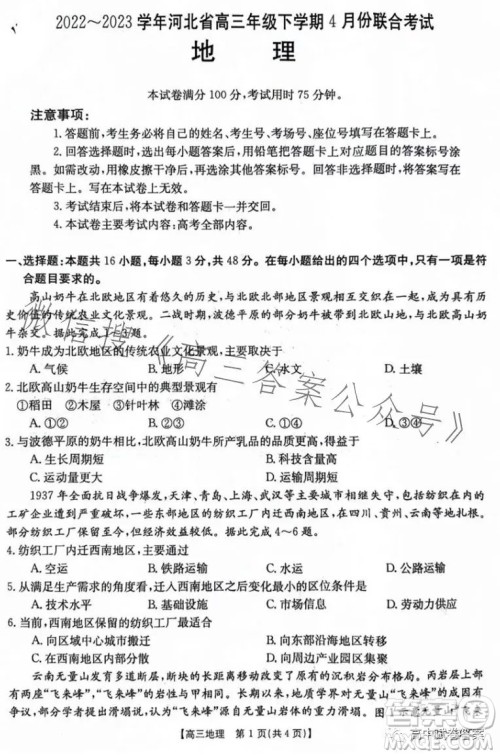 2022～2023学年河北省高三年级下学期4月份联合考试
地 理
本试卷满分100分,考试用时75分钟。
注意事项:
1.答题前,考生务必将自己的姓名、考生号、考场号、座位号填写在答题卡上。
2.回答选择题时,选出每小题答案后,用铅笔把答题卡上对应题目的答案标号涂
黑。如需改动,用橡皮擦干净后,再选涂其他答案标号。回答非选择题时,将答案写在
答题卡上。写在本试卷上无效。
3.考试结束后,将本试卷和答题卡一并交回。
4.本试卷主要考试内容:高考全部内容。
一、选择题:本题共16小题,每小题3分,共48分。在每小题给出的四个选项中,只有一项是符
合题目要求的。
高山奶牛在北欧地区有着悠久的历史,与北欧北部地区景观相互交织在一起,成为该地区典
型的传统农业文化景观。二战时期,波德平原的部分奶牛引入北欧当地山区,成为北欧高山奶
牛杂交。据此完成1～3题。
1.奶牛成为北欧地区的传统农业文化景观,主要取决于
A.气候 B.地形 C.水文 D.土壤
2.北欧高山奶牛生存空间中的典型景观有
①稻田 ②木屋 ③针叶林 ④滩涂
A.①② B.②③ C.③④ D.①④
3.与波德平原的奶牛相比,北欧高山奶牛所产乳品的品质更高,得益于
A.生长周期短 B.科技含量高
C.运动量更大 D.运输周期短
1937年全面抗日战争爆发,天津、青岛、上海、武汉等主要城市相继失守,包括纺织在内的
工矿企业遭受到空前的破坏,一些东部地区的纺织工厂内迁西南地区,在四川、贵州、云南等地发展。
部分纺织工厂保留至今,但大部分纺织工厂最终没落。据此完成4～6题。
4.纺织工厂内迁西南地区,主要通过
A.空运 B.铁路运输 C.水运 D.公路运输
5.从满足生产需求的角度看,迁入西南地区之后变化最小的区位条件是
A.技术水平 B.基础设施 C.市场信息 D.劳动力供应
6.当前,西南地区保留的纺织工厂最适合
A.向区域中心城市搬迁 B.向东部沿海地区转移
C.在西南地区内部分散 D.向当地产业园区集聚
云南无量山发育多道断层,断块的长距离移动改变了原有的地质构造,形成了两组岩层上部
有“飞来峰”的典型地貌景观。
高三地理 第1页(共4页)
微信搜《高三答案公众号》